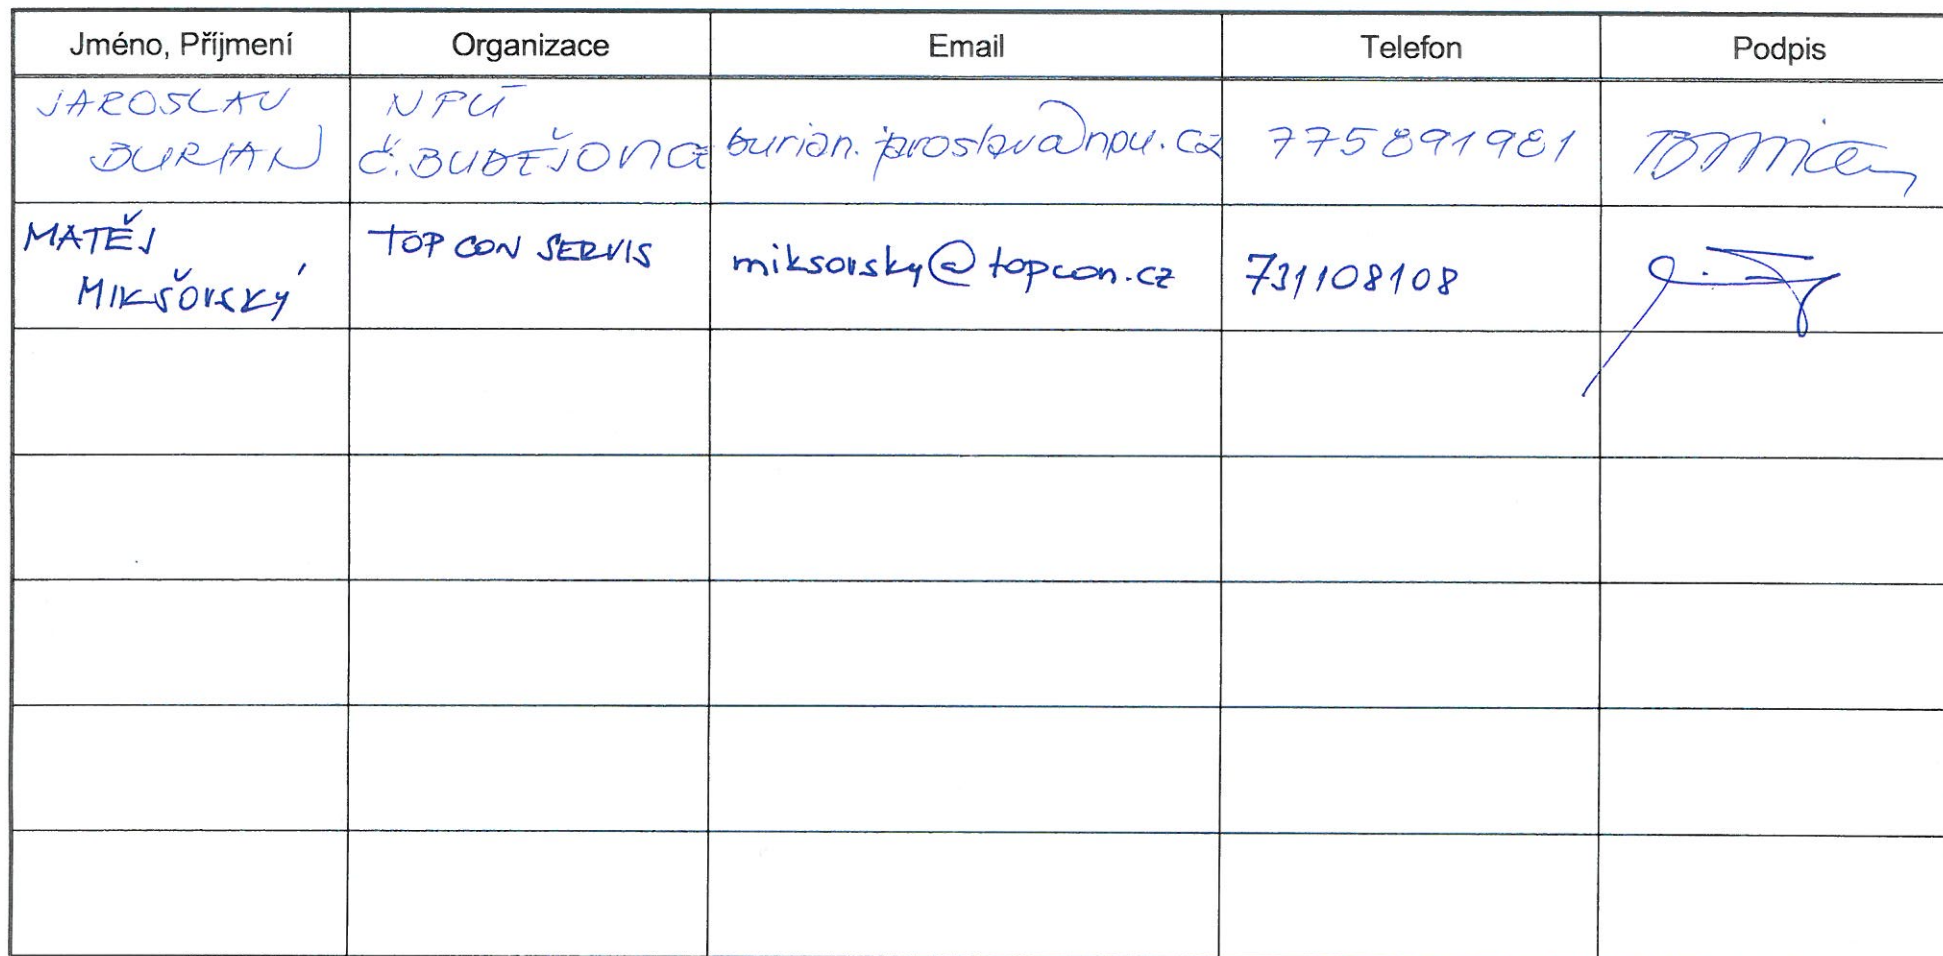 Jméno, Příjmení Organizace Email Telefon Podpis
JAROSLAV NPÚ
BURIAN Č. BUDĚJOVICE burian.jaroslav@npu.cz 775891981 Burian
MATĚJ TOPCON SERVIS
MIKŠOVSKÝ miksovsky@topcon.cz 731108108